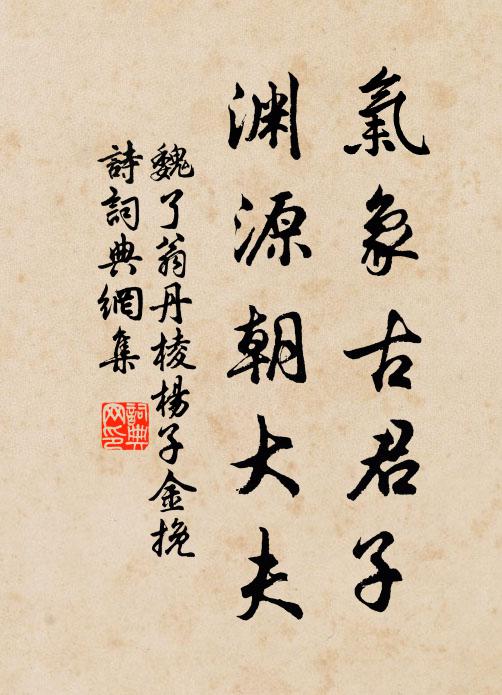 氣象古君子
渊源朝大夫
魏了翁丹棱楊子金挽
詩詞典網集
詞典網印